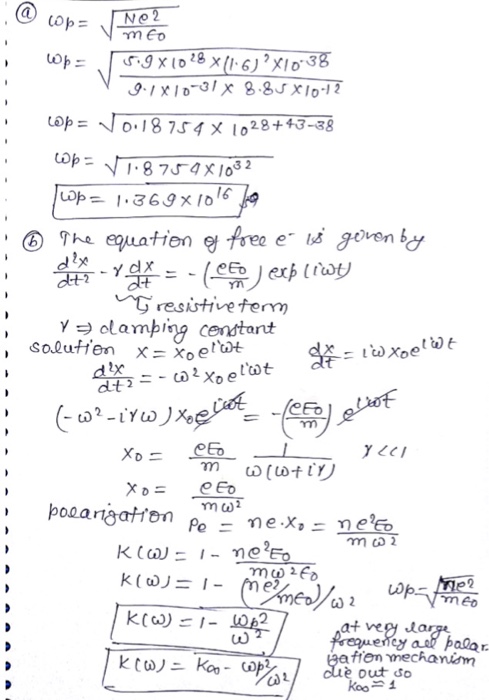 (a) ωp = √(Ne²/mε0)
ωp = √(5.9 × 10^28 × (1.6)² × 10^-38 / 9.1 × 10^-31 × 8.85 × 10^-12)
ωp = √(0.18754 × 10^28+43-38)
ωp = √(1.8754 × 10^32)
ωp = 1.369 × 10^16
(b) The equation of free e⁻ is given by
d²x/dt² - γ dx/dt = -(eE0/m) exp(iωt)
↳ resistive term
γ ⇒ damping constant
solution x = x0 e^iωt dx/dt = iω x0 e^iωt
d²x/dt² = -ω² x0 e^iωt
(-ω² - iγω) x0 e^iωt = -(eE0/m) e^iωt
x0 = eE0/m 1/ω(ω+iγ) γ<<1
x0 = eE0/mω²
polarization Pe = ne·x0 = ne²E0/mω²
K(ω) = 1 - ne²E0/mω²ε0
K(ω) = 1 - (ne²/mε0)/ω² ωp = √(ne²/mε0)
K(ω) = 1 - ωp²/ω²
K(ω) = K∞ - ωp²/ω²
at very large
frequency all polar-
ization mechanism
die out so
K∞ = 1